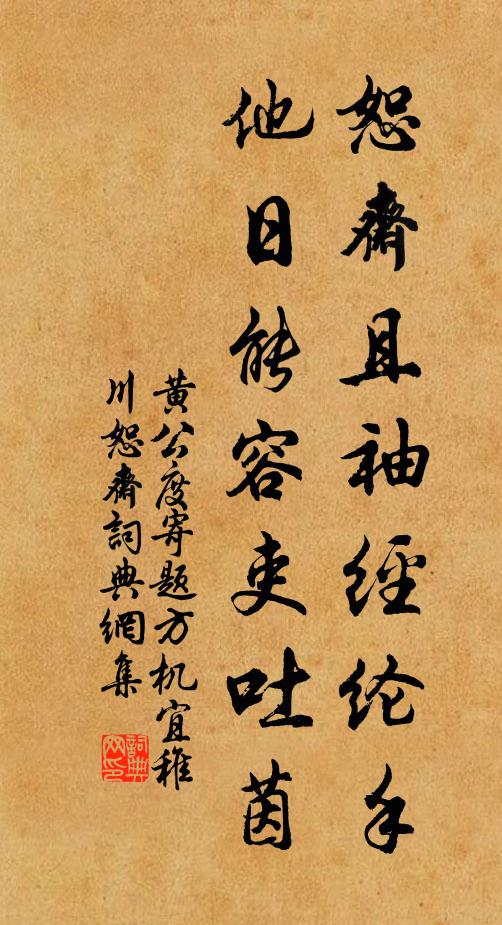 恕齋且袖經纶手
他日能容吏吐茵
黄公度寄题方机宜稚
川恕齋詞典網集
詞典
网印